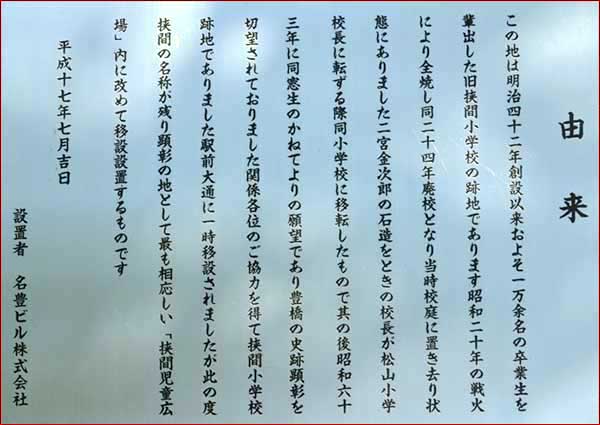 由来
この地は明治四十二年創設以来およそ一万余名の卒業生を
輩出した旧狭間小学校の跡地であります昭和二十年の戦火
により全焼し同二十四年廃校となり当時校庭に置き去り状
態にありました二宮金次郎の石造をときの校長が松山小学
校長に転ずる際同小学校に移転したもので其の後昭和六十
三年に同窓生のかねてよりの願望であり豊橋の史跡顕彰を
切望されておりました関係各位のご協力を得て狭間小学校
跡地でありました駅前大通に一時移設されましたが此の度
狭間の名称が残り顕彰の地として最も相応しい「狭間児童広
場」内に改めて移設設置するものです
平成十七年七月吉日
設置者 名豊ビル株式会社